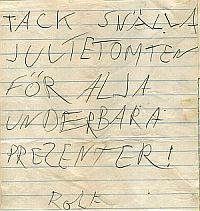 TACK SNÄLLA
JULTETOMTEN
FÖR ALJA
UNDERBARA
PREZENTER!
ROLF